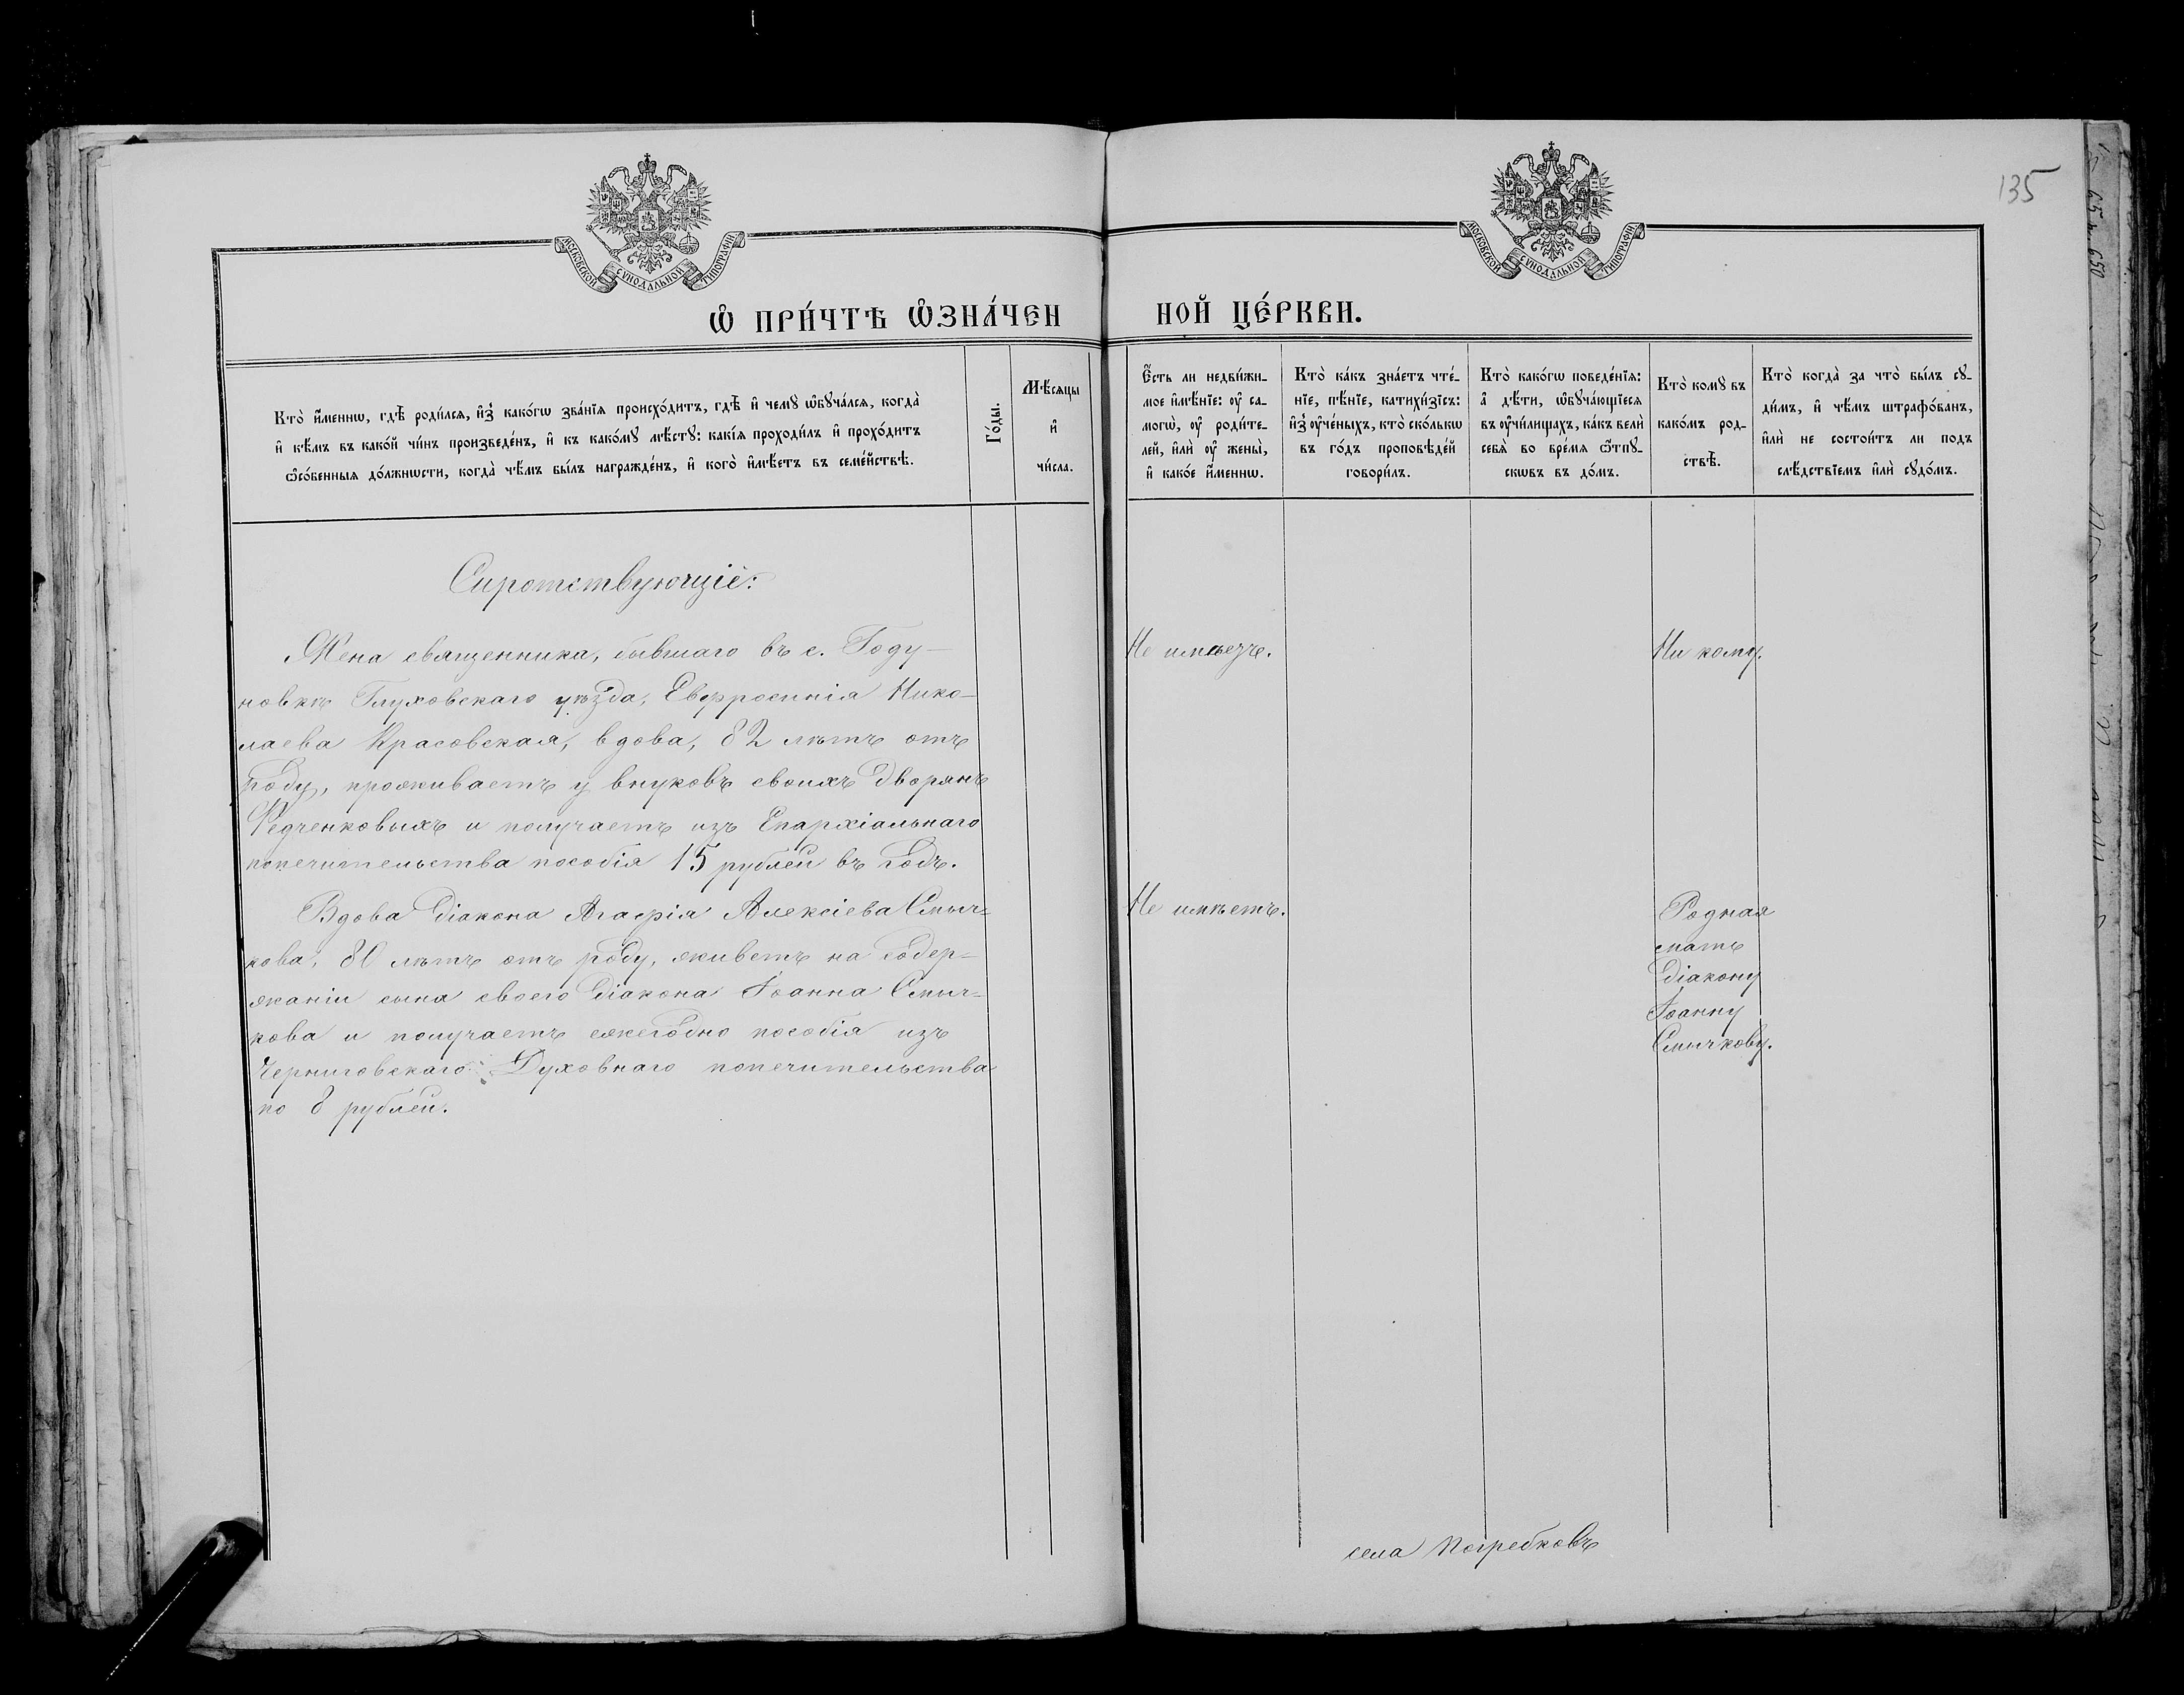 135
МОСКОВСКОЙ СѴНОДАЛЬНОЙ ТИПОГРАФІИ
МОСКОВСКОЙ СѴНОДАЛЬНОЙ ТИПОГРАФІИ
Ѽ ПРИ́ЧТѢ Ѡ҆ЗНА́ЧЕН НОЙ ЦЕ́РКВИ.
Кто̀ и҆́меннѡ, гдѣ̀ роди́лсѧ, и҆з̾ како́гѡ зва́нїѧ происхо́дитъ, гдѣ̀ и҆ чемꙋ̀ ѡ҆бꙋча́лсѧ, когда̀
и҆ кѣ́мъ въ како́й чи́нъ произведе́нъ, и҆ къ како́мꙋ мѣ́стꙋ: какі́ѧ проходи́лъ и҆ прохо́дитъ
ѻ҆со́бенныѧ до́лжнѡсти, когда̀ чѣ́мъ бы́лъ награжде́нъ, и҆ кого̀ и҆мѣ́етъ въ семе́йствѣ.
Го́ды.
Мѣ́сѧцы
и҆
чи́сла.
Є҆́сть ли недви́жи-
мое и҆мѣ́нїе: ᲂу҆ са-
могѡ̀, ᲂу҆ роди́те-
лей, и҆лѝ ᲂу҆ жены̀,
и҆ како́е и҆́меннѡ.
Кто̀ ка́къ зна́етъ чте́-
нїе, пѣ́нїе, катихи́зїсъ:
и҆з̾ ᲂу҆че́ныхъ, кто̀ ско́лькѡ
въ го́дъ проповѣ́дей
говори́лъ.
Кто̀ како́гѡ поведе́нїѧ:
а҆ дѣ́ти, ѡ҆бꙋча́ющїесѧ
въ ᲂу҆чи́лищахъ, ка́къ велѝ
себѧ̀ во вре́мѧ ѿпꙋ-
скѡвъ въ до́мъ.
Кто̀ комꙋ̀ въ
како́мъ род-
ствѣ̀.
Кто̀ когда̀ за что̀ бы́лъ сꙋ-
ди́мъ, и҆ чѣ́мъ штрафо́ванъ,
и҆лѝ не состои́тъ ли подъ
слѣ́дствїемъ и҆лѝ сꙋдо́мъ.
Сиротствующіе:
Жена священника, бывшаго въ с. Году-
новкѣ Глуховскаго уѣзда, Евфросинія Нико-
лаева Красовская, вдова, 82 лѣтъ отъ
роду, проживаетъ у внуковъ своихъ дворянъ
Федченковыхъ и получаетъ изъ Епархіальнаго
попечительства пособія 15 рублей въ годъ.
Не имѣетъ.
Ни кому.
Вдова діакона Агафія Алексіева Смыч-
кова, 80 лѣтъ отъ роду, живетъ на содер-
жаніи сына своего діакона Іоанна Смыч-
кова и получаетъ ежегодно пособія изъ
Черниговскаго Духовнаго попечительства
по 8 рублей.
Не имѣетъ.
Родная
мать
діакону
Іоанну
Смычкову.
села Погребковъ